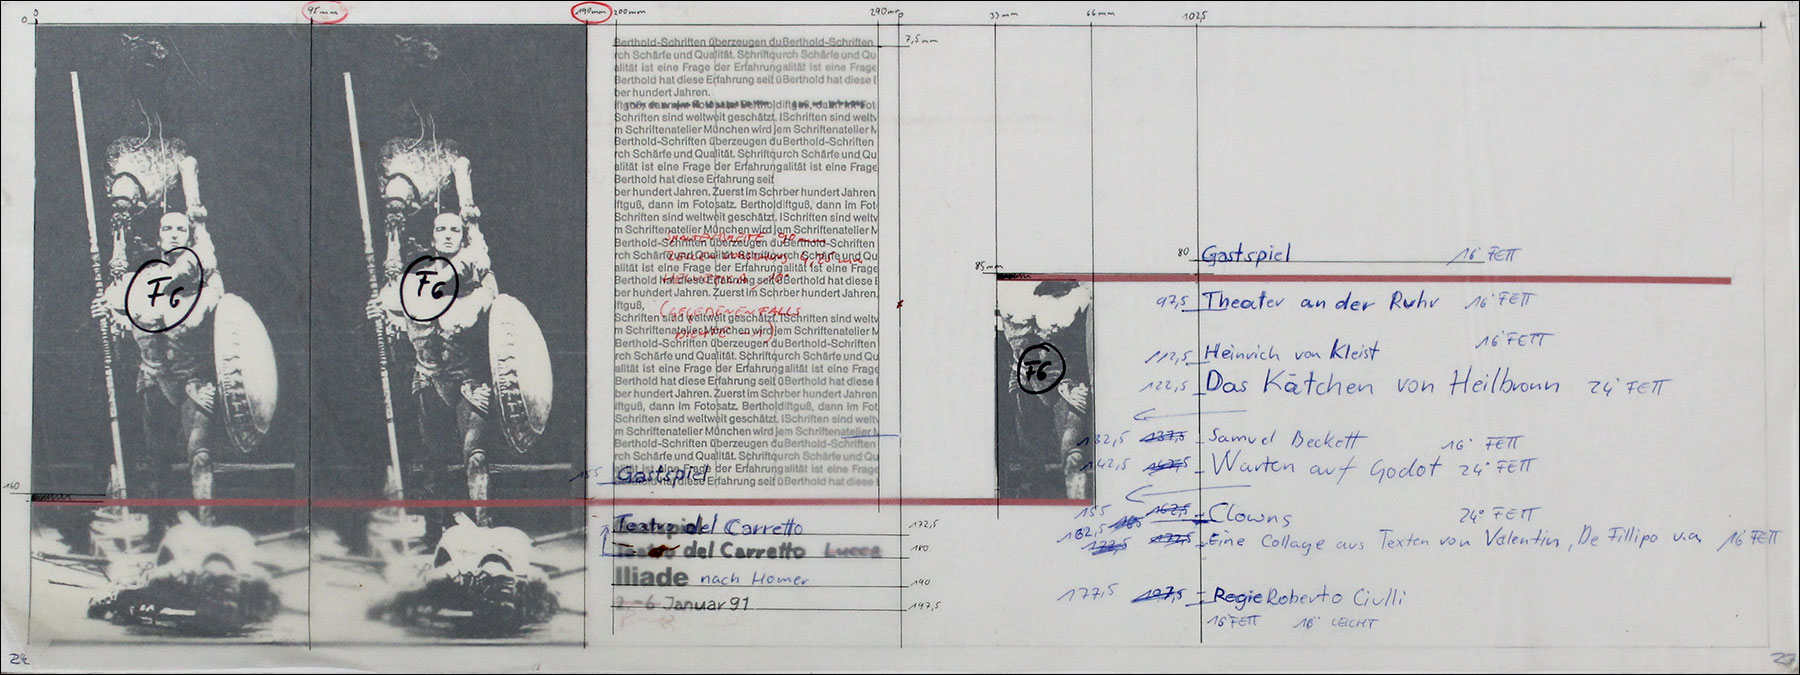 0 0 95mm 190mm 200mm 290mm 0 33mm 66mm 102,5
7,5mm
Berthold-Schriften überzeugen duBerthold-Schriften
rch Schärfe und Qualität. Schriftqurch Schärfe und Qu
alität ist eine Frage der Erfahrungalität ist eine Frage
Berthold hat diese Erfahrung seit üBerthold hat diese
ber hundert Jahren.
Schriften sind weltweit geschätzt. ISchriften sind weltv
m Schriftenatelier München wird jem Schriftenatelier M
Berthold-Schriften überzeugen duBerthold-Schriften
rch Schärfe und Qualität. Schriftqurch Schärfe und Qu
alität ist eine Frage der Erfahrungalität ist eine Frage
Berthold hat diese Erfahrung seit
ber hundert Jahren. Zuerst im Schrber hundert Jahren.
iftguß, dann im Fotosatz. Bertholdiftguß, dann im Fot
Schriften sind weltweit geschätzt. ISchriften sind weltv
m Schriftenatelier München wird jem Schriftenatelier M
Berthold-Schriften überzeugen duBerthold-Schriften
rch Schärfe und Qualität. Schriftqurch Schärfe und Qu
alität ist eine Frage der Erfahrungalität ist eine Frage
Berthold hat diese Erfahrung seit üBerthold hat diese
ber hundert Jahren. Zuerst im Schrber hundert Jahren
iftguß,
(GEGEBENENFALLS
Schriften sind weltweit geschätzt. ISchriften sind weltv
m Schriftenatelier München wird jem Schriftenatelier M
Berthold-Schriften überzeugen duBerthold-Schriften
rch Schärfe und Qualität. Schriftqurch Schärfe und Qu
alität ist eine Frage der Erfahrungalität ist eine Frage
Berthold hat diese Erfahrung seit üBerthold hat diese
ber hundert Jahren. Zuerst im Schrber hundert Jahren.
iftguß, dann im Fotosatz. Bertholdiftguß, dann im Fot
Schriften sind weltweit geschätzt. ISchriften sind weltv
m Schriftenatelier München wird jem Schriftenatelier M
Berthold-Schriften überzeugen duBerthold-Schriften
rch Schärfe und Qualität. Schriftqurch Schärfe und Qu
alität ist eine Frage der Erfahrungalität ist eine Frage
F6 F6
160
155 Gastspiel
Teatro del Carretto 172,5
del Carretto Lucca 180
Iliade nach Homer 190
6 Januar 91 197,5
24
85mm
F6
80 Gastspiel 16° FETT
97,5 Theater an der Ruhr 16° FETT
16° FETT
112,5 Heinrich von Kleist
122,5 Das Kätchen von Heilbronn 24° FETT
132,5 137,5 Samuel Beckett 16° FETT
142,5 147,5 Warten auf Godot 24° FETT
155 162,5 Clowns 24° FETT
162,5 172,5 Eine Collage aus Texten von Valentin, De Fillipo u.a. 16° FETT
177,5 197,5 Regie Roberto Ciulli
16° FETT 16° LEICHT
27